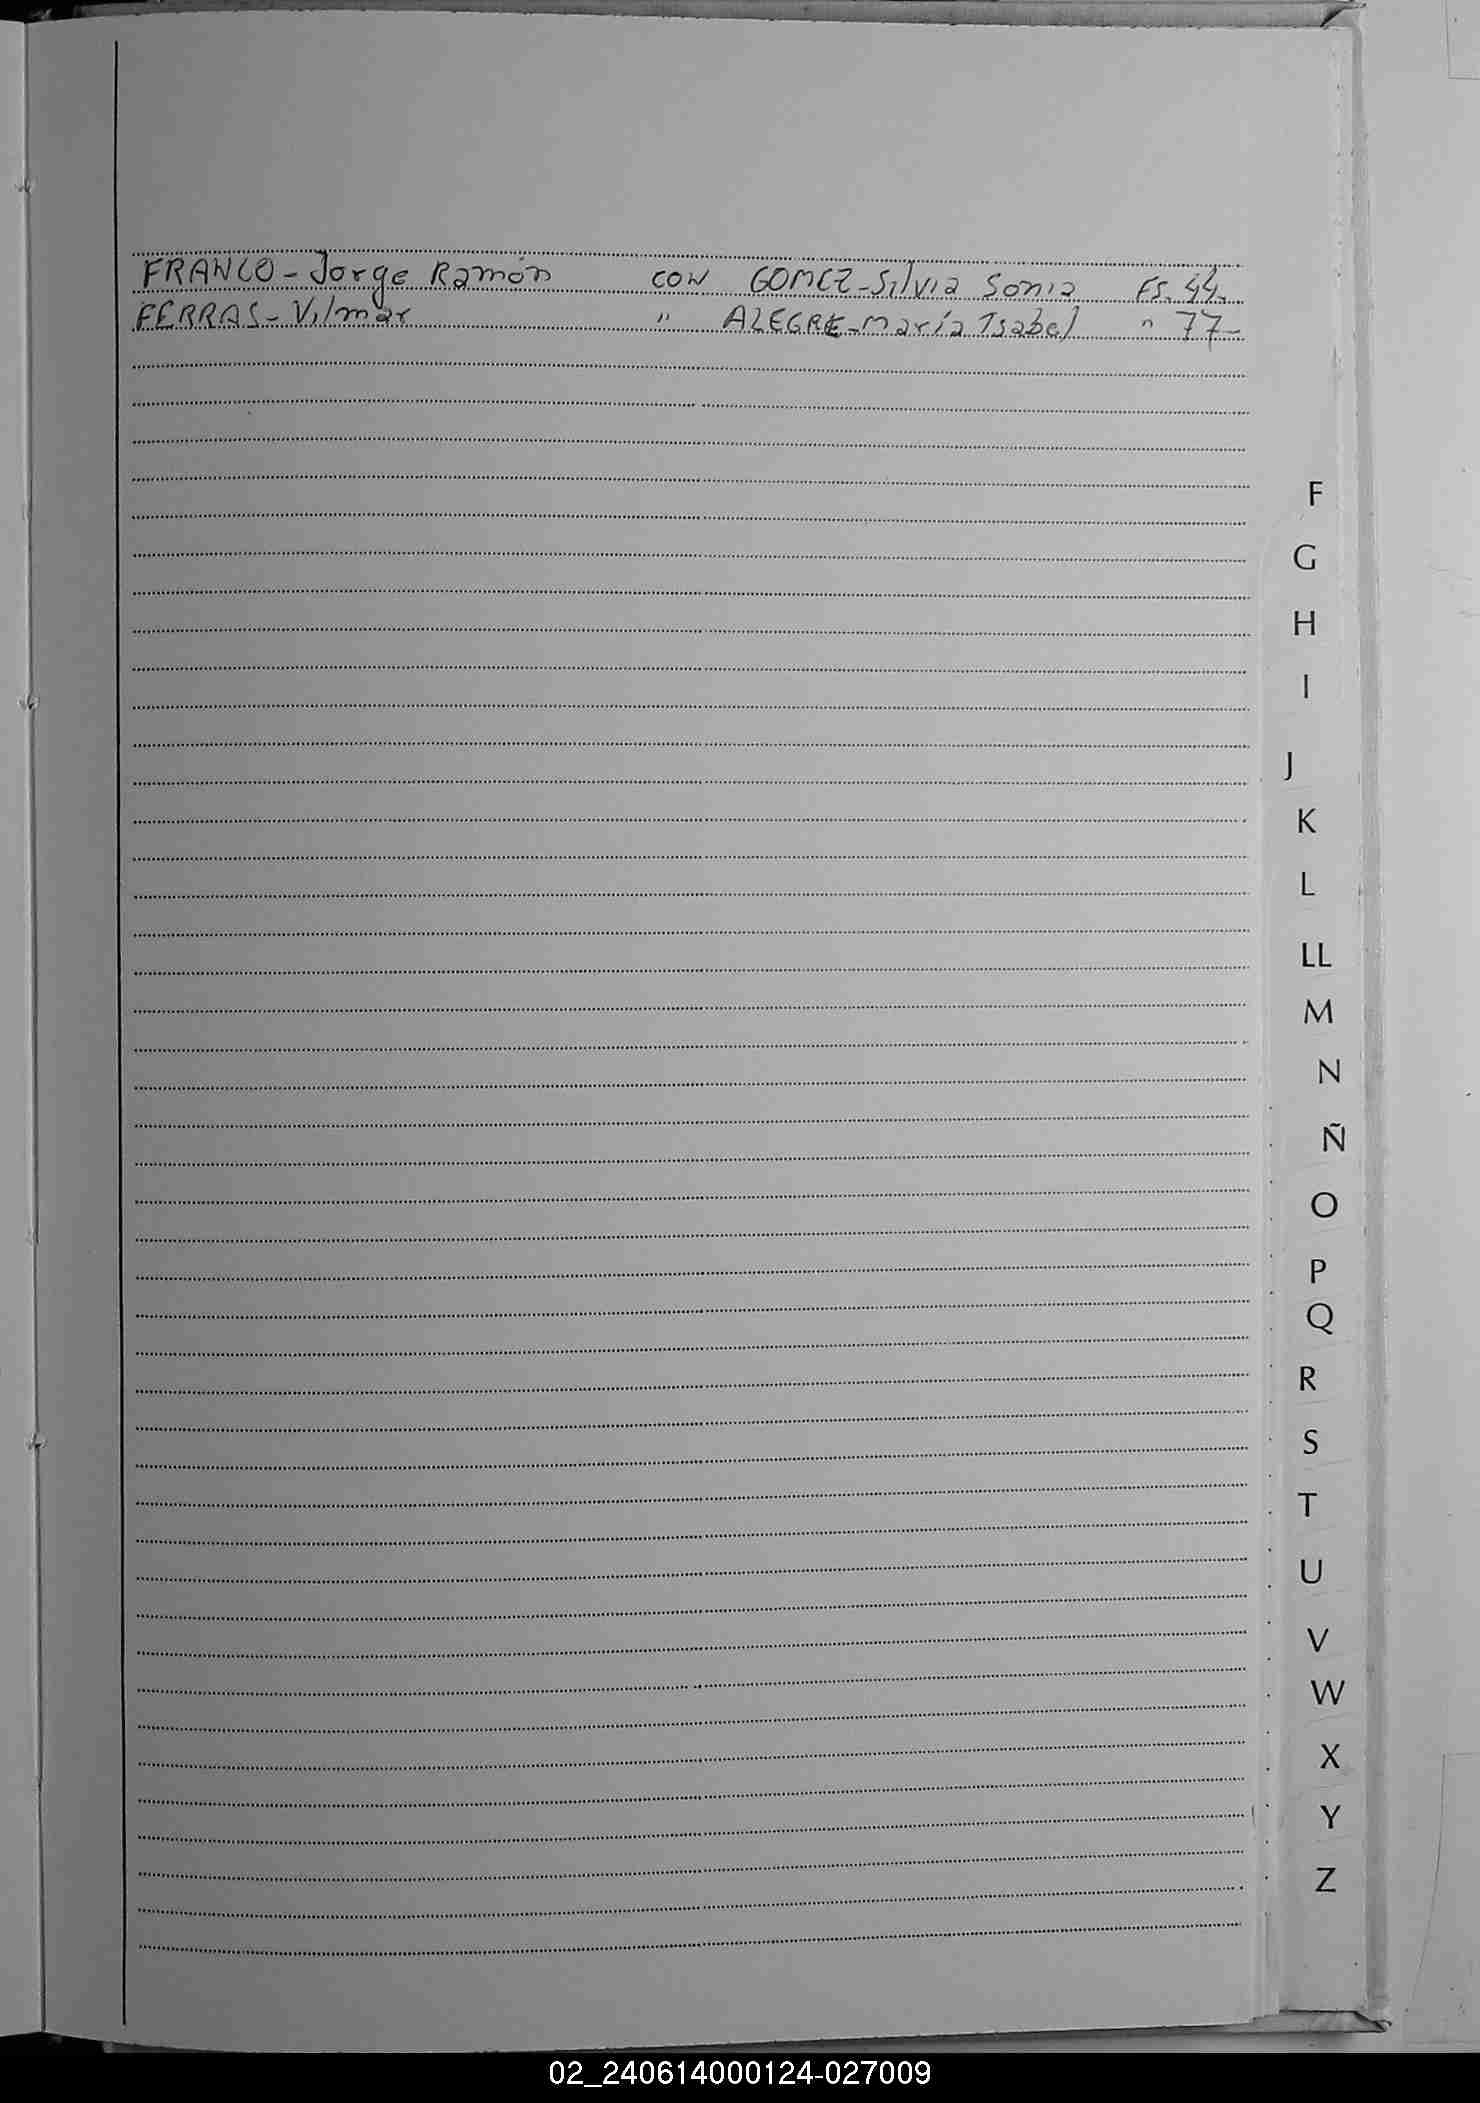 FRANCO - Jorge Ramón con GOMEZ - Silvia Sonia Fs. 44.
FERRAS - Vilmar " ALEGRE - María Isabel " 77 -
F
G
H
I
J
K
L
LL
M
N
Ñ
O
P
Q
R
S
T
U
V
W
X
Y
Z
02_240614000124-027009